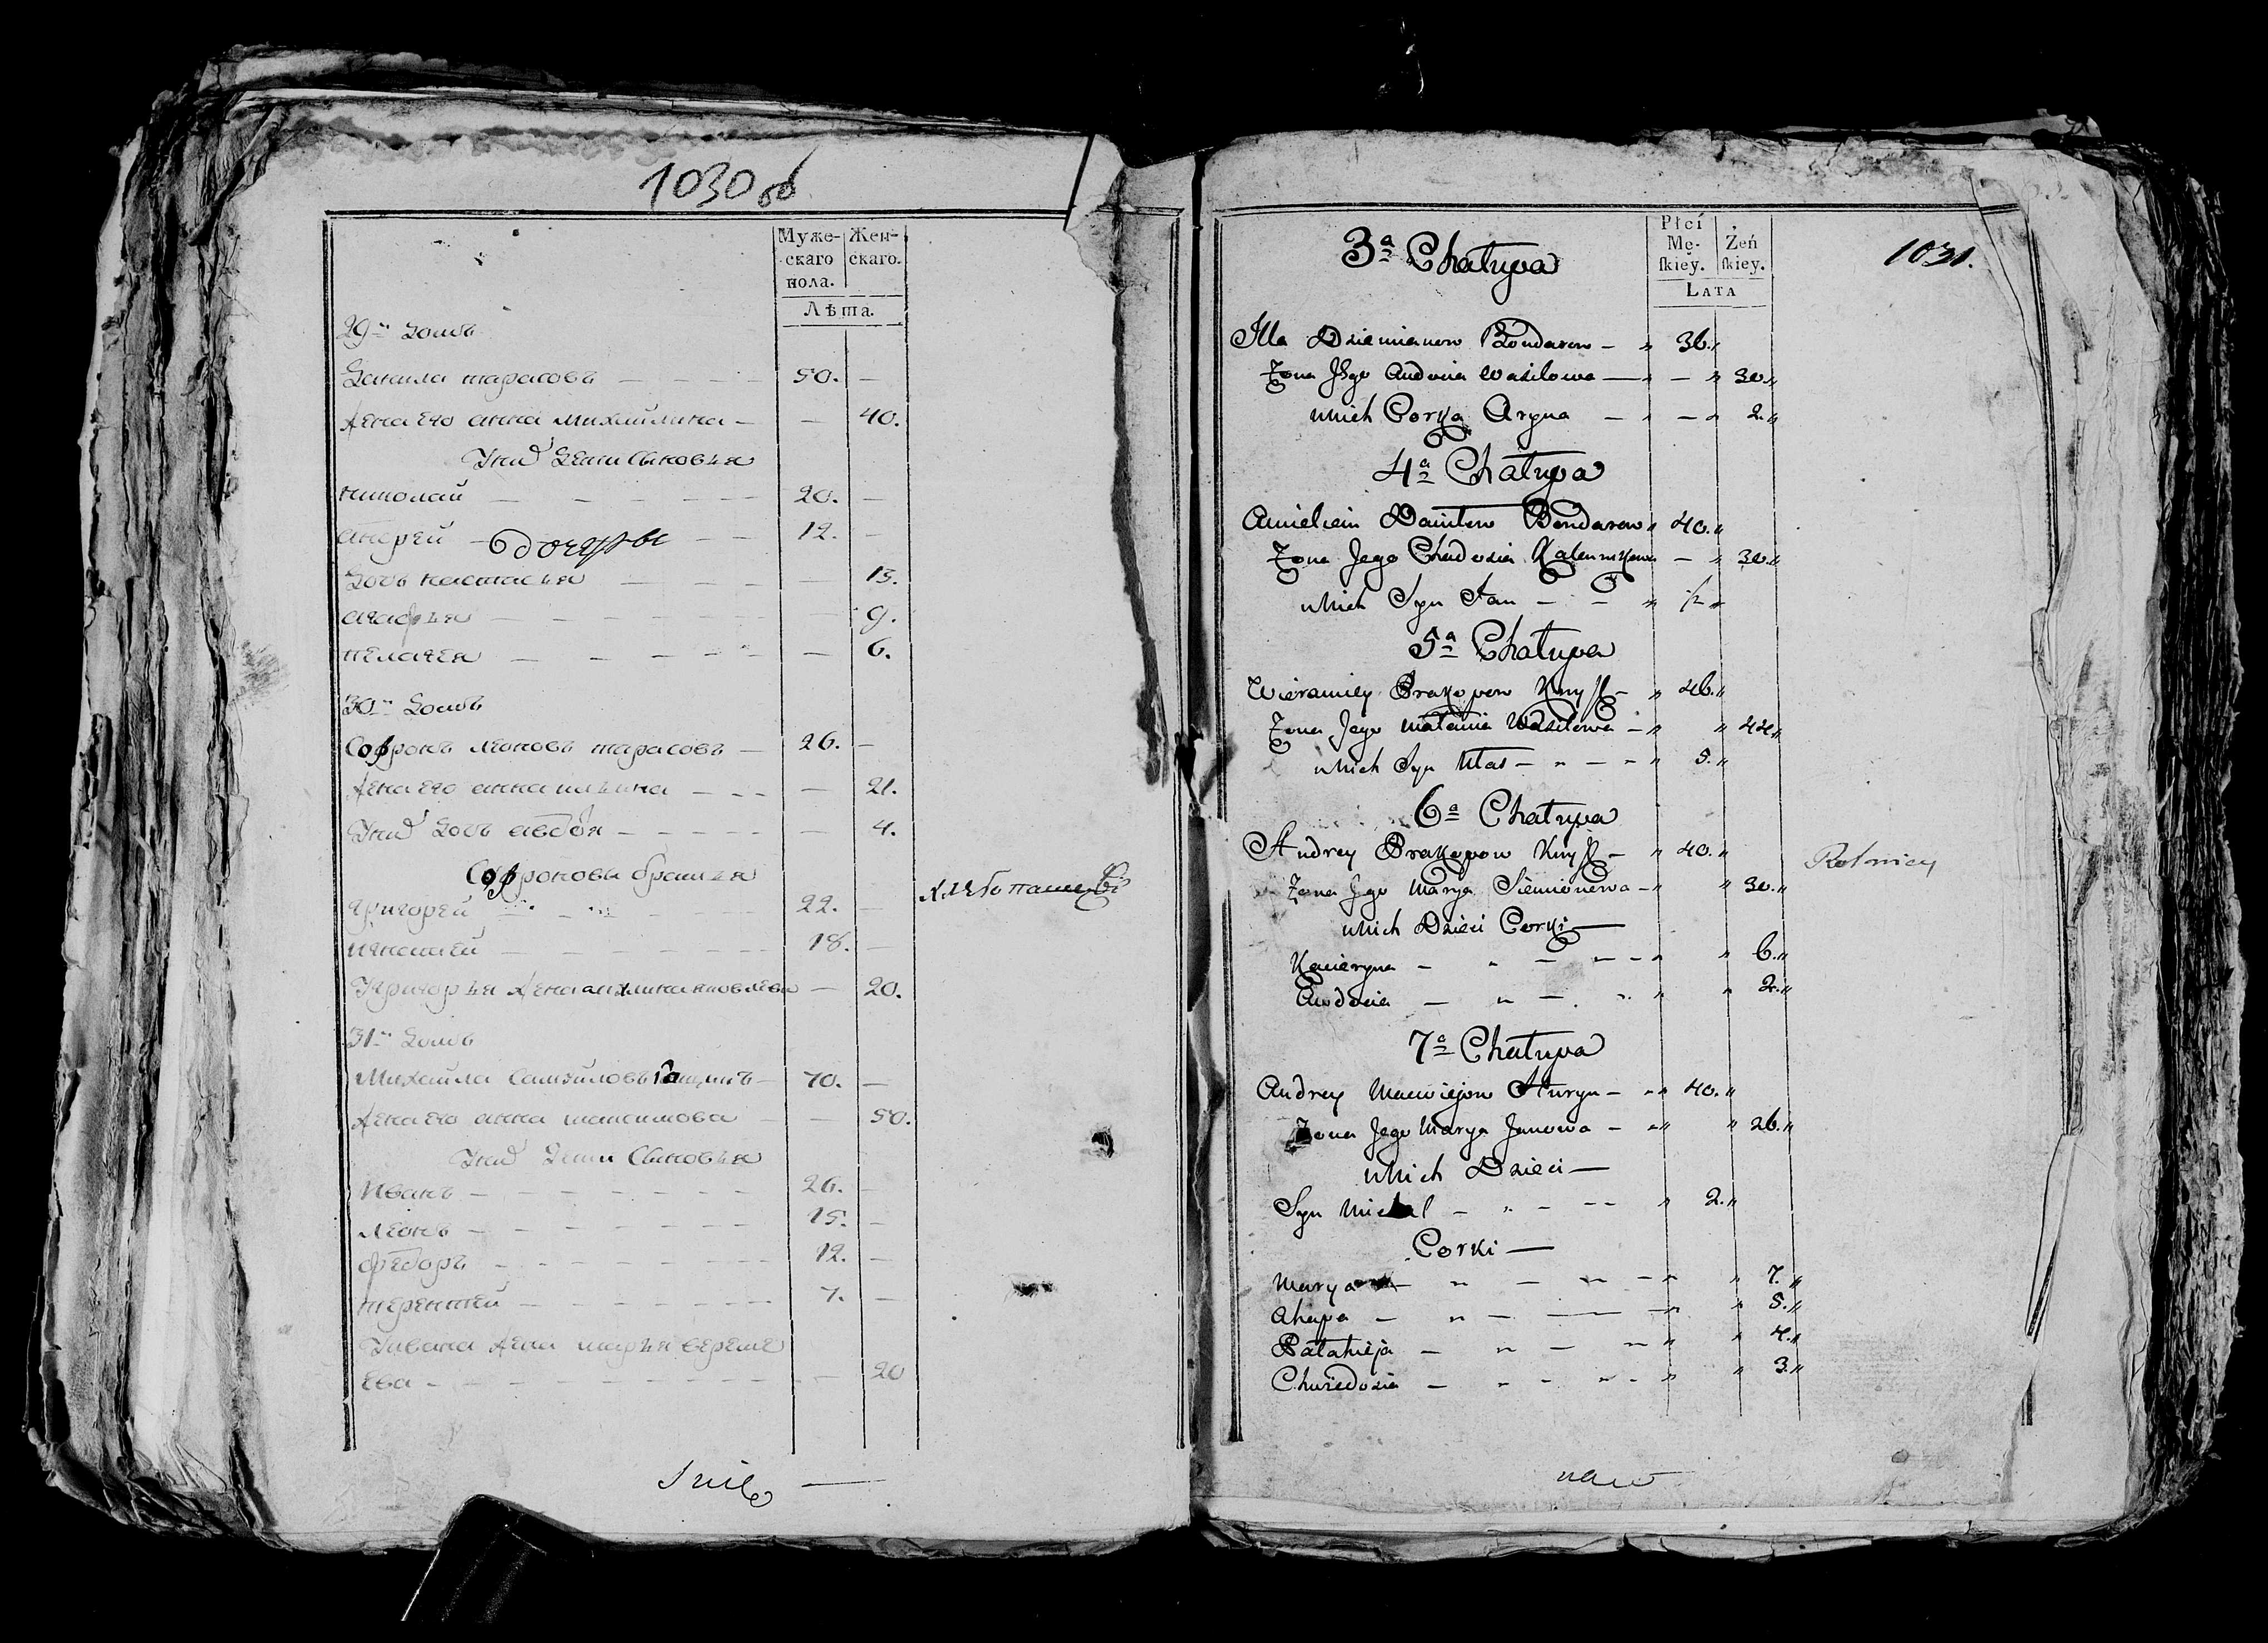 1030 об
Муже-
скаго
пола.
Жен-
скаго.
Лѣта.
29 й домъ
Данила тарасовъ 50.
Жена его анна михайлина 40.
У них дети Сыновья
николай 20.
андрей 12.
дочеры
дочь настасья 13.
агафья 9.
пелагея 6.
30 й домъ
Софронъ леоновъ тарасовъ 26.
Жена его анна ильина 21.
У них дочь авдотя 4.
Софроновы братья
григорей 22.
хлебопашцы
игнатей 18.
У григорья жена акулина яковлева 20.
31 й домъ
Михайла Самойловъ 70.
Жена его анна максимова 50.
У них дети Сыновья
Иванъ 26.
леонъ 15.
федоръ 12.
терентей 7.
У ивана жена марья еремее
ева 20
1031.
3a Chałupa
Płci
Mę-
skiey.
Żeń
skiey.
LATA
Illa Dziemianow Bondarow 36
Zona Jego Audocia Wasilowa 30
u Nich Corka Aryna 2
4a Chałupa
Amielcian Daniłow Bondarow 40
Zona Jego Chadosia 30
u Nich Syn Jan
5a Chałupa
Wieramiey Prakopow Knysz 46
Zona Jego Małania Wasilowa 44
u Nich Syn Ułas 5
6a Chałupa
Andrey Prakopow Knysz 40
Rolnicy
Zona Jego Marya Siemionowa 30
u Nich Dzieci Corki
Kacieryna 6
Audocia 2
7a Chałupa
Andrey Maciejow Huryn 40
Zona Jego Marya Janowa 26
u Nich Dzieci
Syn Michał 2
Corki
Marya 7
Ahapa 5
Pałahieja 4
Chwiedosia 3